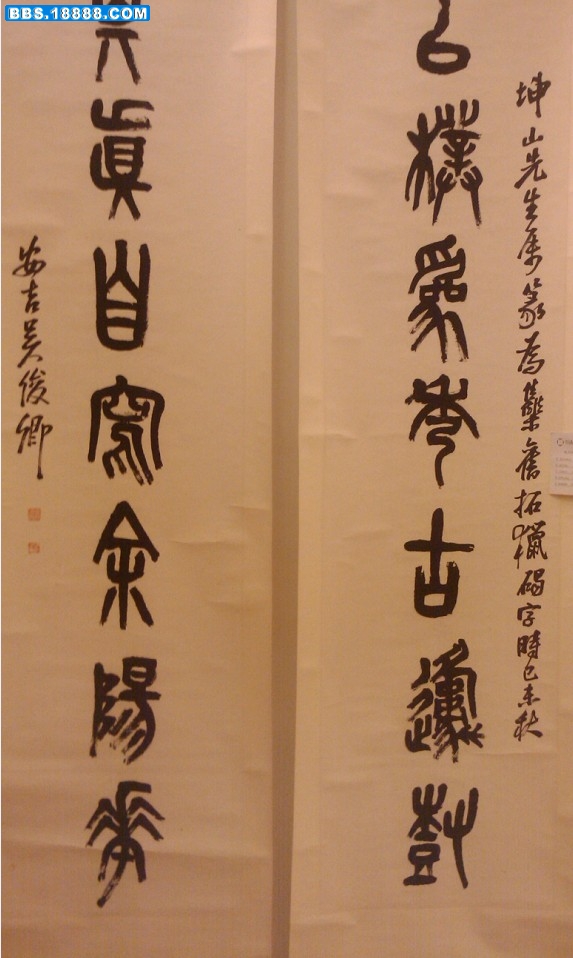 BBS.18888.COM
坤山先生屬篆為集舊拓獵碣字時己未秋
樸爲秀古邍尌
真自寫余陽華
安吉吳俊卿